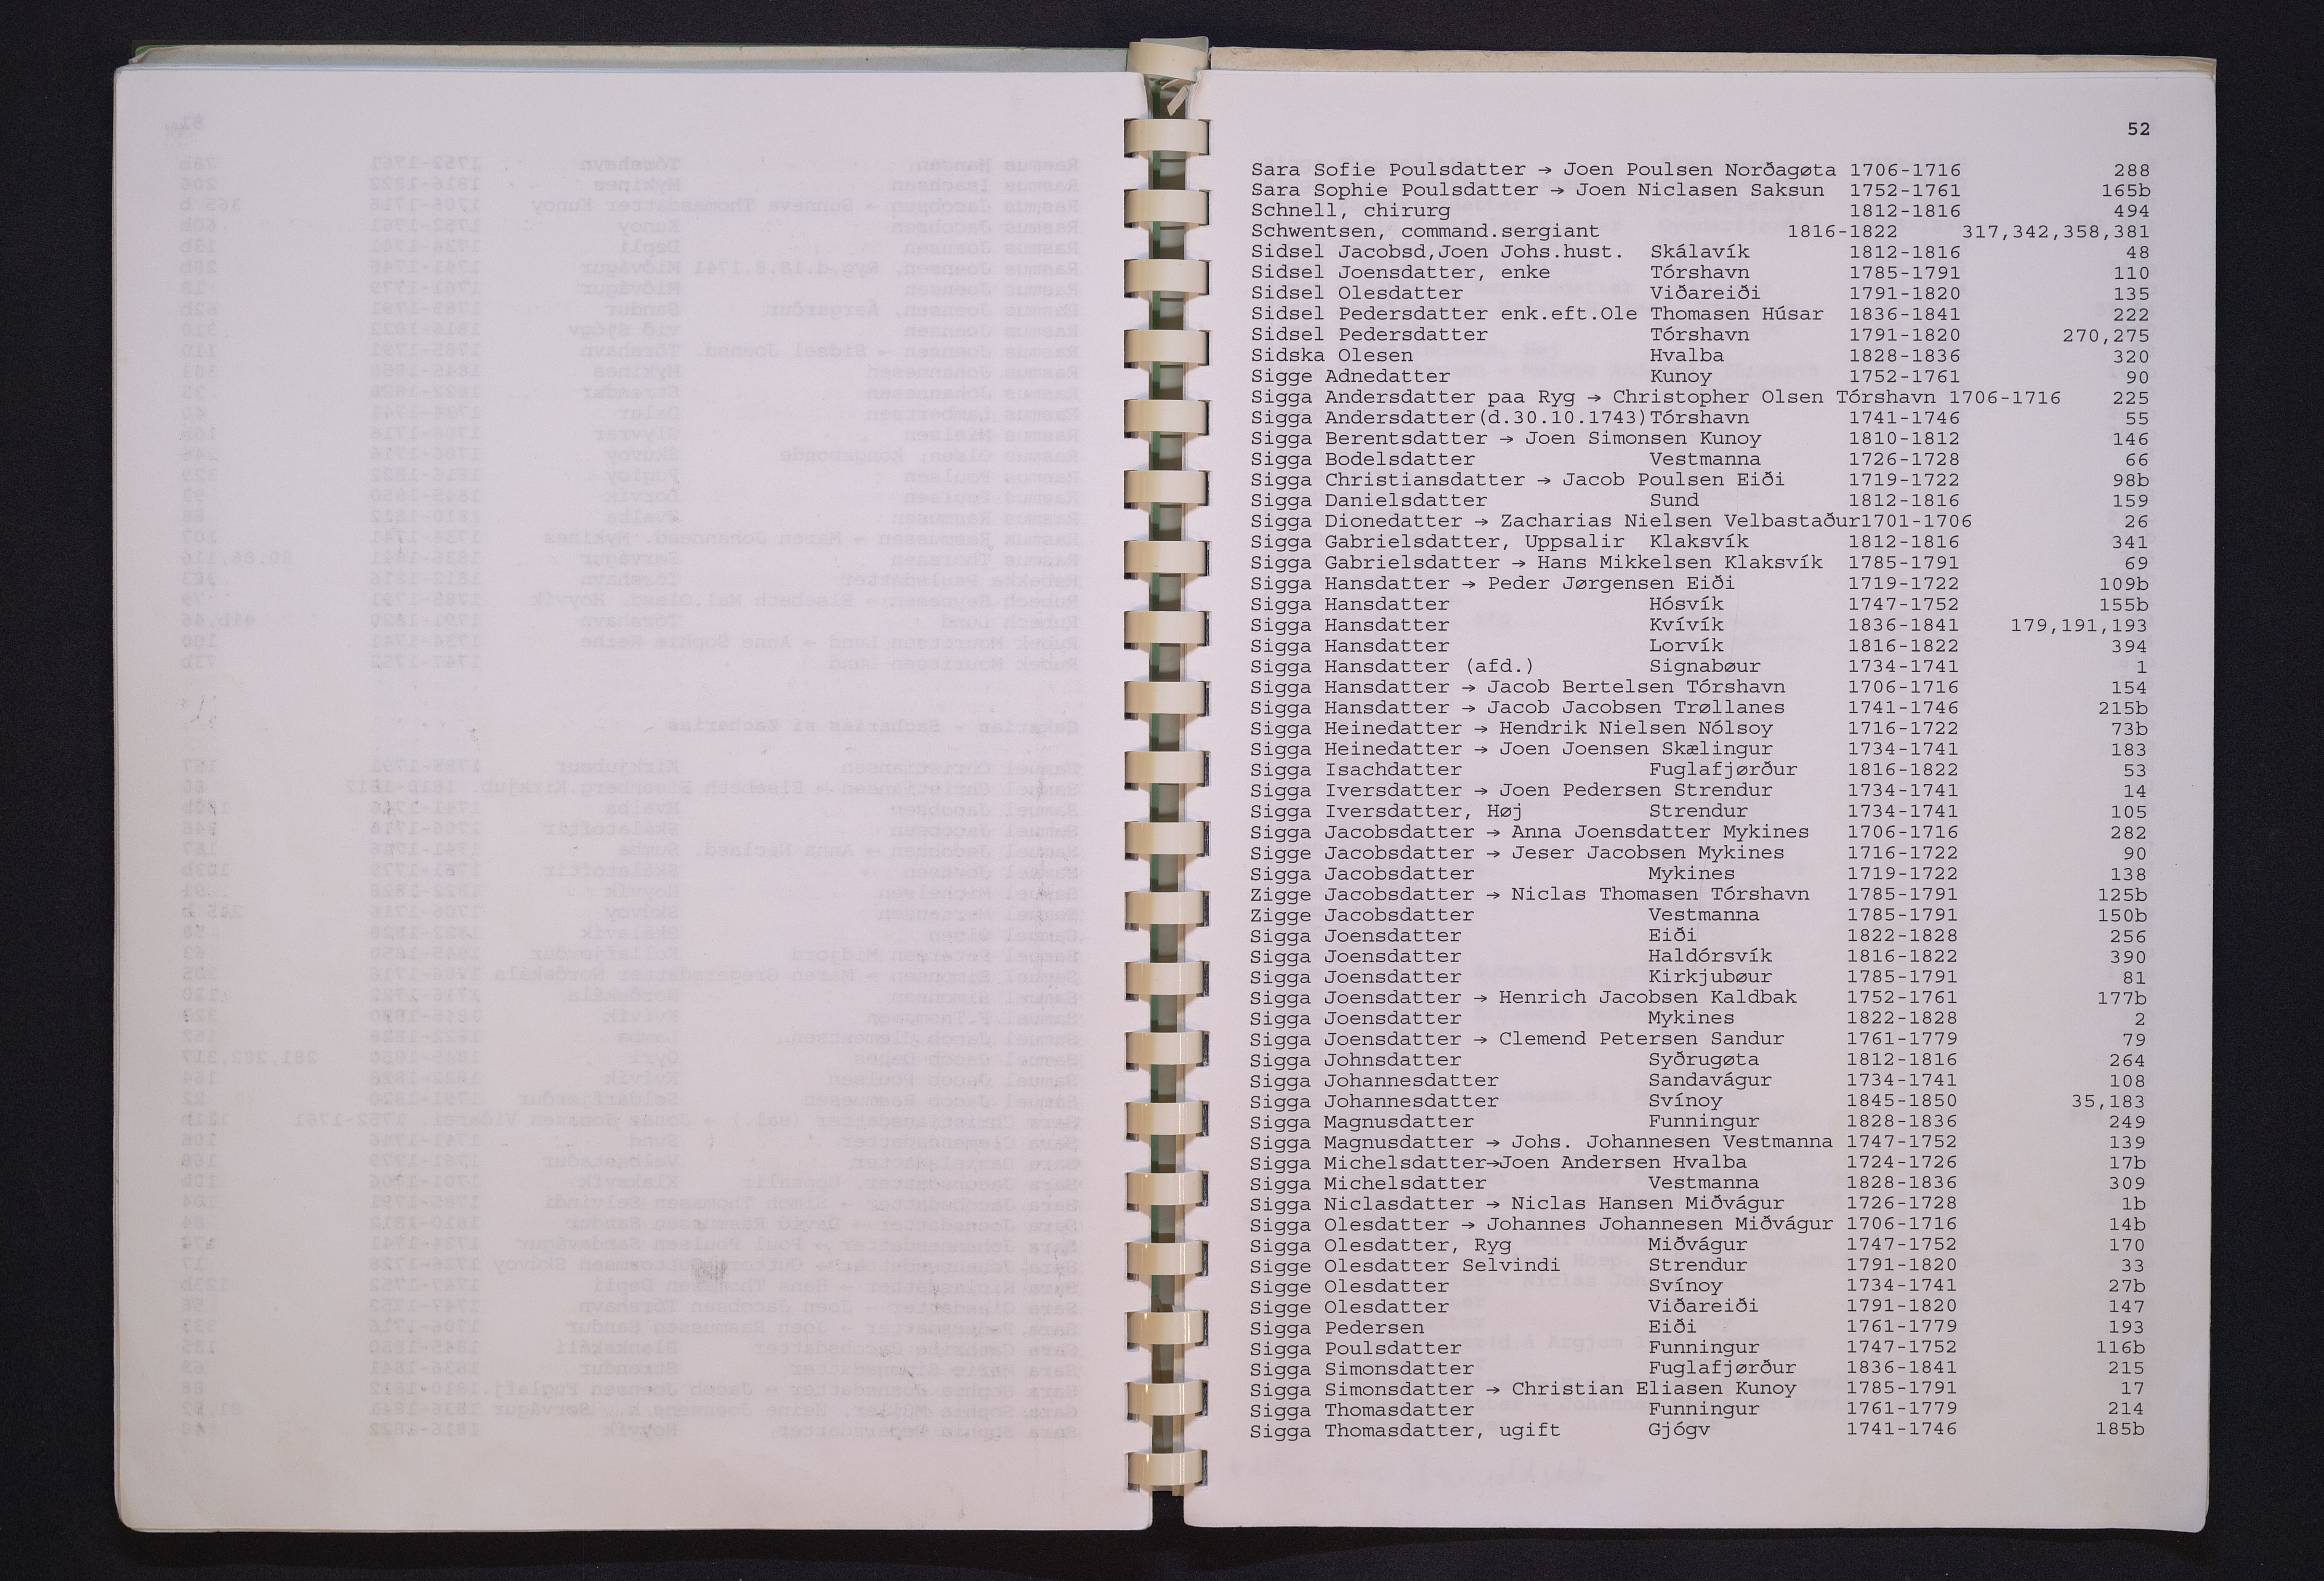 52
Sara Sofie Poulsdatter → Joen Poulsen Norðagøta 1706-1716 288
Sara Sophie Poulsdatter → Joen Niclasen Saksun 1752-1761 165b
Schnell, chirurg 1812-1816 494
Schwentsen, command.sergiant 1816-1822 317,342,358,381
Sidsel Jacobsd,Joen Johs.hust. Skálavík 1812-1816 48
Sidsel Joensdatter, enke Tórshavn 1785-1791 110
Sidsel Olesdatter Viðareiði 1791-1820 135
Sidsel Pedersdatter enk.eft.Ole Thomasen Húsar 1836-1841 222
Sidsel Pedersdatter Tórshavn 1791-1820 270,275
Sidska Olesen Hvalba 1828-1836 320
Sigge Adnedatter Kunoy 1752-1761 90
Sigga Andersdatter paa Ryg → Christopher Olsen Tórshavn 1706-1716 225
Sigga Andersdatter(d.30.10.1743)Tórshavn 1741-1746 55
Sigga Berentsdatter → Joen Simonsen Kunoy 1810-1812 146
Sigga Bodelsdatter Vestmanna 1726-1728 66
Sigga Christiansdatter → Jacob Poulsen Eiði 1719-1722 98b
Sigga Danielsdatter Sund 1812-1816 159
Sigga Dionedatter → Zacharias Nielsen Velbastaður1701-1706 26
Sigga Gabrielsdatter, Uppsalir Klaksvík 1812-1816 341
Sigga Gabrielsdatter → Hans Mikkelsen Klaksvík 1785-1791 69
Sigga Hansdatter → Peder Jørgensen Eiði 1719-1722 109b
Sigga Hansdatter Hósvík 1747-1752 155b
Sigga Hansdatter Kvívík 1836-1841 179,191,193
Sigga Hansdatter Lorvík 1816-1822 394
Sigga Hansdatter (afd.) Signabøur 1734-1741 1
Sigga Hansdatter → Jacob Bertelsen Tórshavn 1706-1716 154
Sigga Hansdatter → Jacob Jacobsen Trøllanes 1741-1746 215b
Sigga Heinedatter → Hendrik Nielsen Nólsoy 1716-1722 73b
Sigga Heinedatter → Joen Joensen Skælingur 1734-1741 183
Sigga Isachdatter Fuglafjørður 1816-1822 53
Sigga Iversdatter → Joen Pedersen Strendur 1734-1741 14
Sigga Iversdatter, Høj Strendur 1734-1741 105
Sigga Jacobsdatter → Anna Joensdatter Mykines 1706-1716 282
Sigge Jacobsdatter → Jeser Jacobsen Mykines 1716-1722 90
Sigga Jacobsdatter Mykines 1719-1722 138
Zigge Jacobsdatter → Niclas Thomasen Tórshavn 1785-1791 125b
Zigge Jacobsdatter Vestmanna 1785-1791 150b
Sigga Joensdatter Eiði 1822-1828 256
Sigga Joensdatter Haldórsvík 1816-1822 390
Sigga Joensdatter Kirkjubøur 1785-1791 81
Sigga Joensdatter → Henrich Jacobsen Kaldbak 1752-1761 177b
Sigga Joensdatter Mykines 1822-1828 2
Sigga Joensdatter → Clemend Petersen Sandur 1761-1779 79
Sigga Johnsdatter Syðrugøta 1812-1816 264
Sigga Johannesdatter Sandavágur 1734-1741 108
Sigga Johannesdatter Svínoy 1845-1850 35,183
Sigga Magnusdatter Funningur 1828-1836 249
Sigga Magnusdatter → Johs. Johannesen Vestmanna 1747-1752 139
Sigga Michelsdatter→Joen Andersen Hvalba 1724-1726 17b
Sigga Michelsdatter Vestmanna 1828-1836 309
Sigga Niclasdatter → Niclas Hansen Miðvágur 1726-1728 1b
Sigga Olesdatter → Johannes Johannesen Miðvágur 1706-1716 14b
Sigga Olesdatter, Ryg Miðvágur 1747-1752 170
Sigge Olesdatter Selvindi Strendur 1791-1820 33
Sigge Olesdatter Svínoy 1734-1741 27b
Sigge Olesdatter Viðareiði 1791-1820 147
Sigga Pedersen Eiði 1761-1779 193
Sigga Poulsdatter Funningur 1747-1752 116b
Sigga Simonsdatter Fuglafjørður 1836-1841 215
Sigga Simonsdatter → Christian Eliasen Kunoy 1785-1791 17
Sigga Thomasdatter Funningur 1761-1779 214
Sigga Thomasdatter, ugift Gjógv 1741-1746 185b